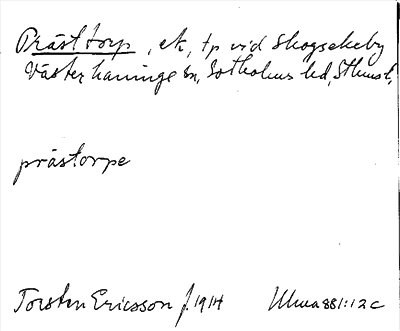 Prästtorp, ek, tp vid Skogsekeby
Västerhaninge sn, Sotholms hd, Sthms l.
prästorpe
Torsten Ericsson f. 1914 Ulma 881:12 c